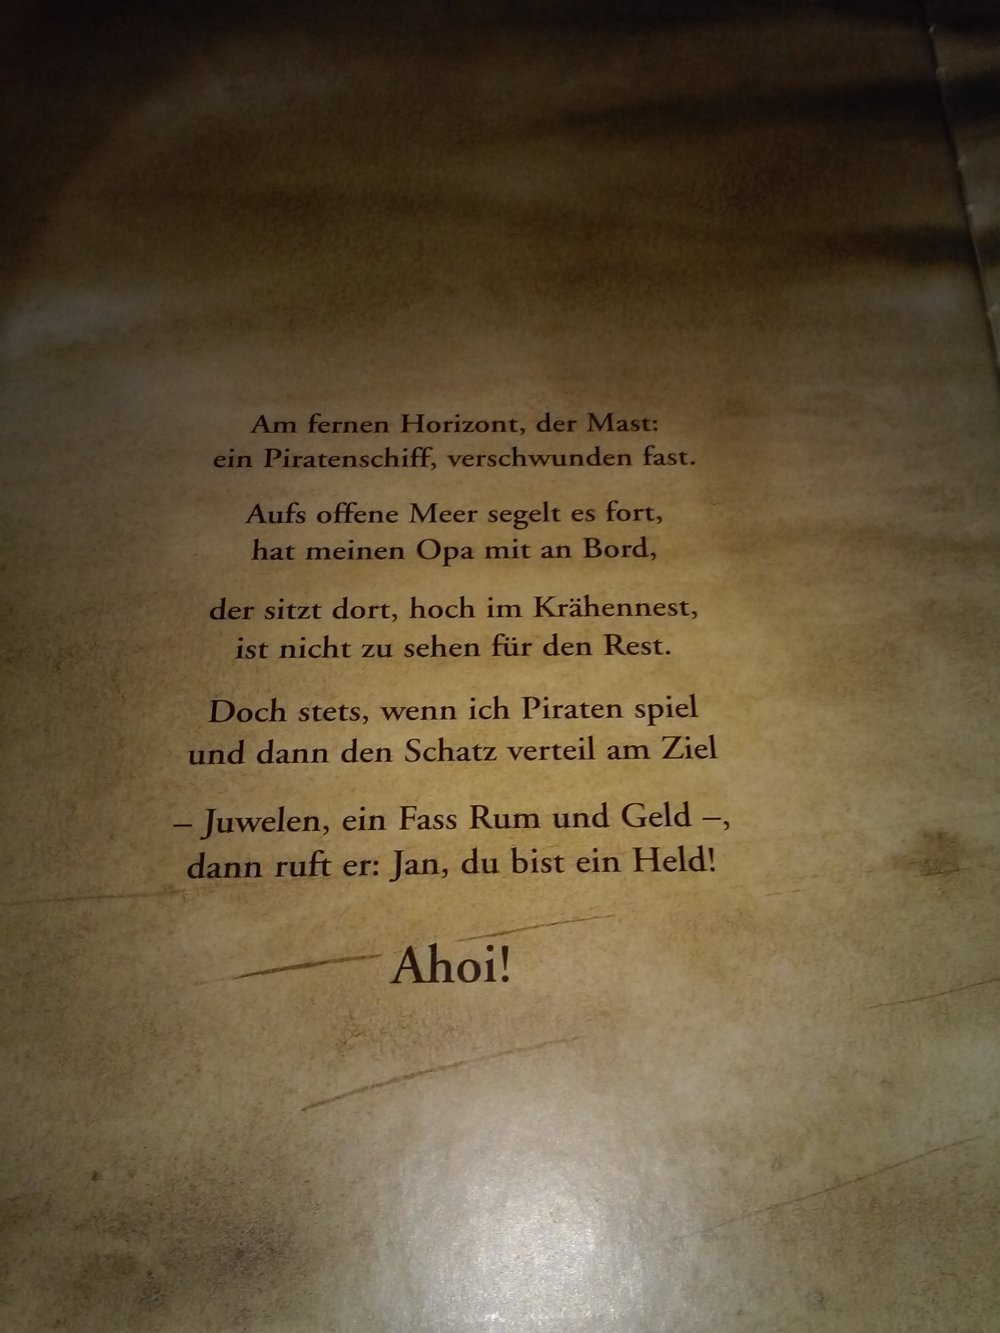 Am fernen Horizont, der Mast:
ein Piratenschiff, verschwunden fast.
Aufs offene Meer segelt es fort,
hat meinen Opa mit an Bord,
der sitzt dort, hoch im Krähennest,
ist nicht zu sehen für den Rest.
Doch stets, wenn ich Piraten spiel
und dann den Schatz verteil am Ziel
– Juwelen, ein Fass Rum und Geld –,
dann ruft er: Jan, du bist ein Held!
Ahoi!